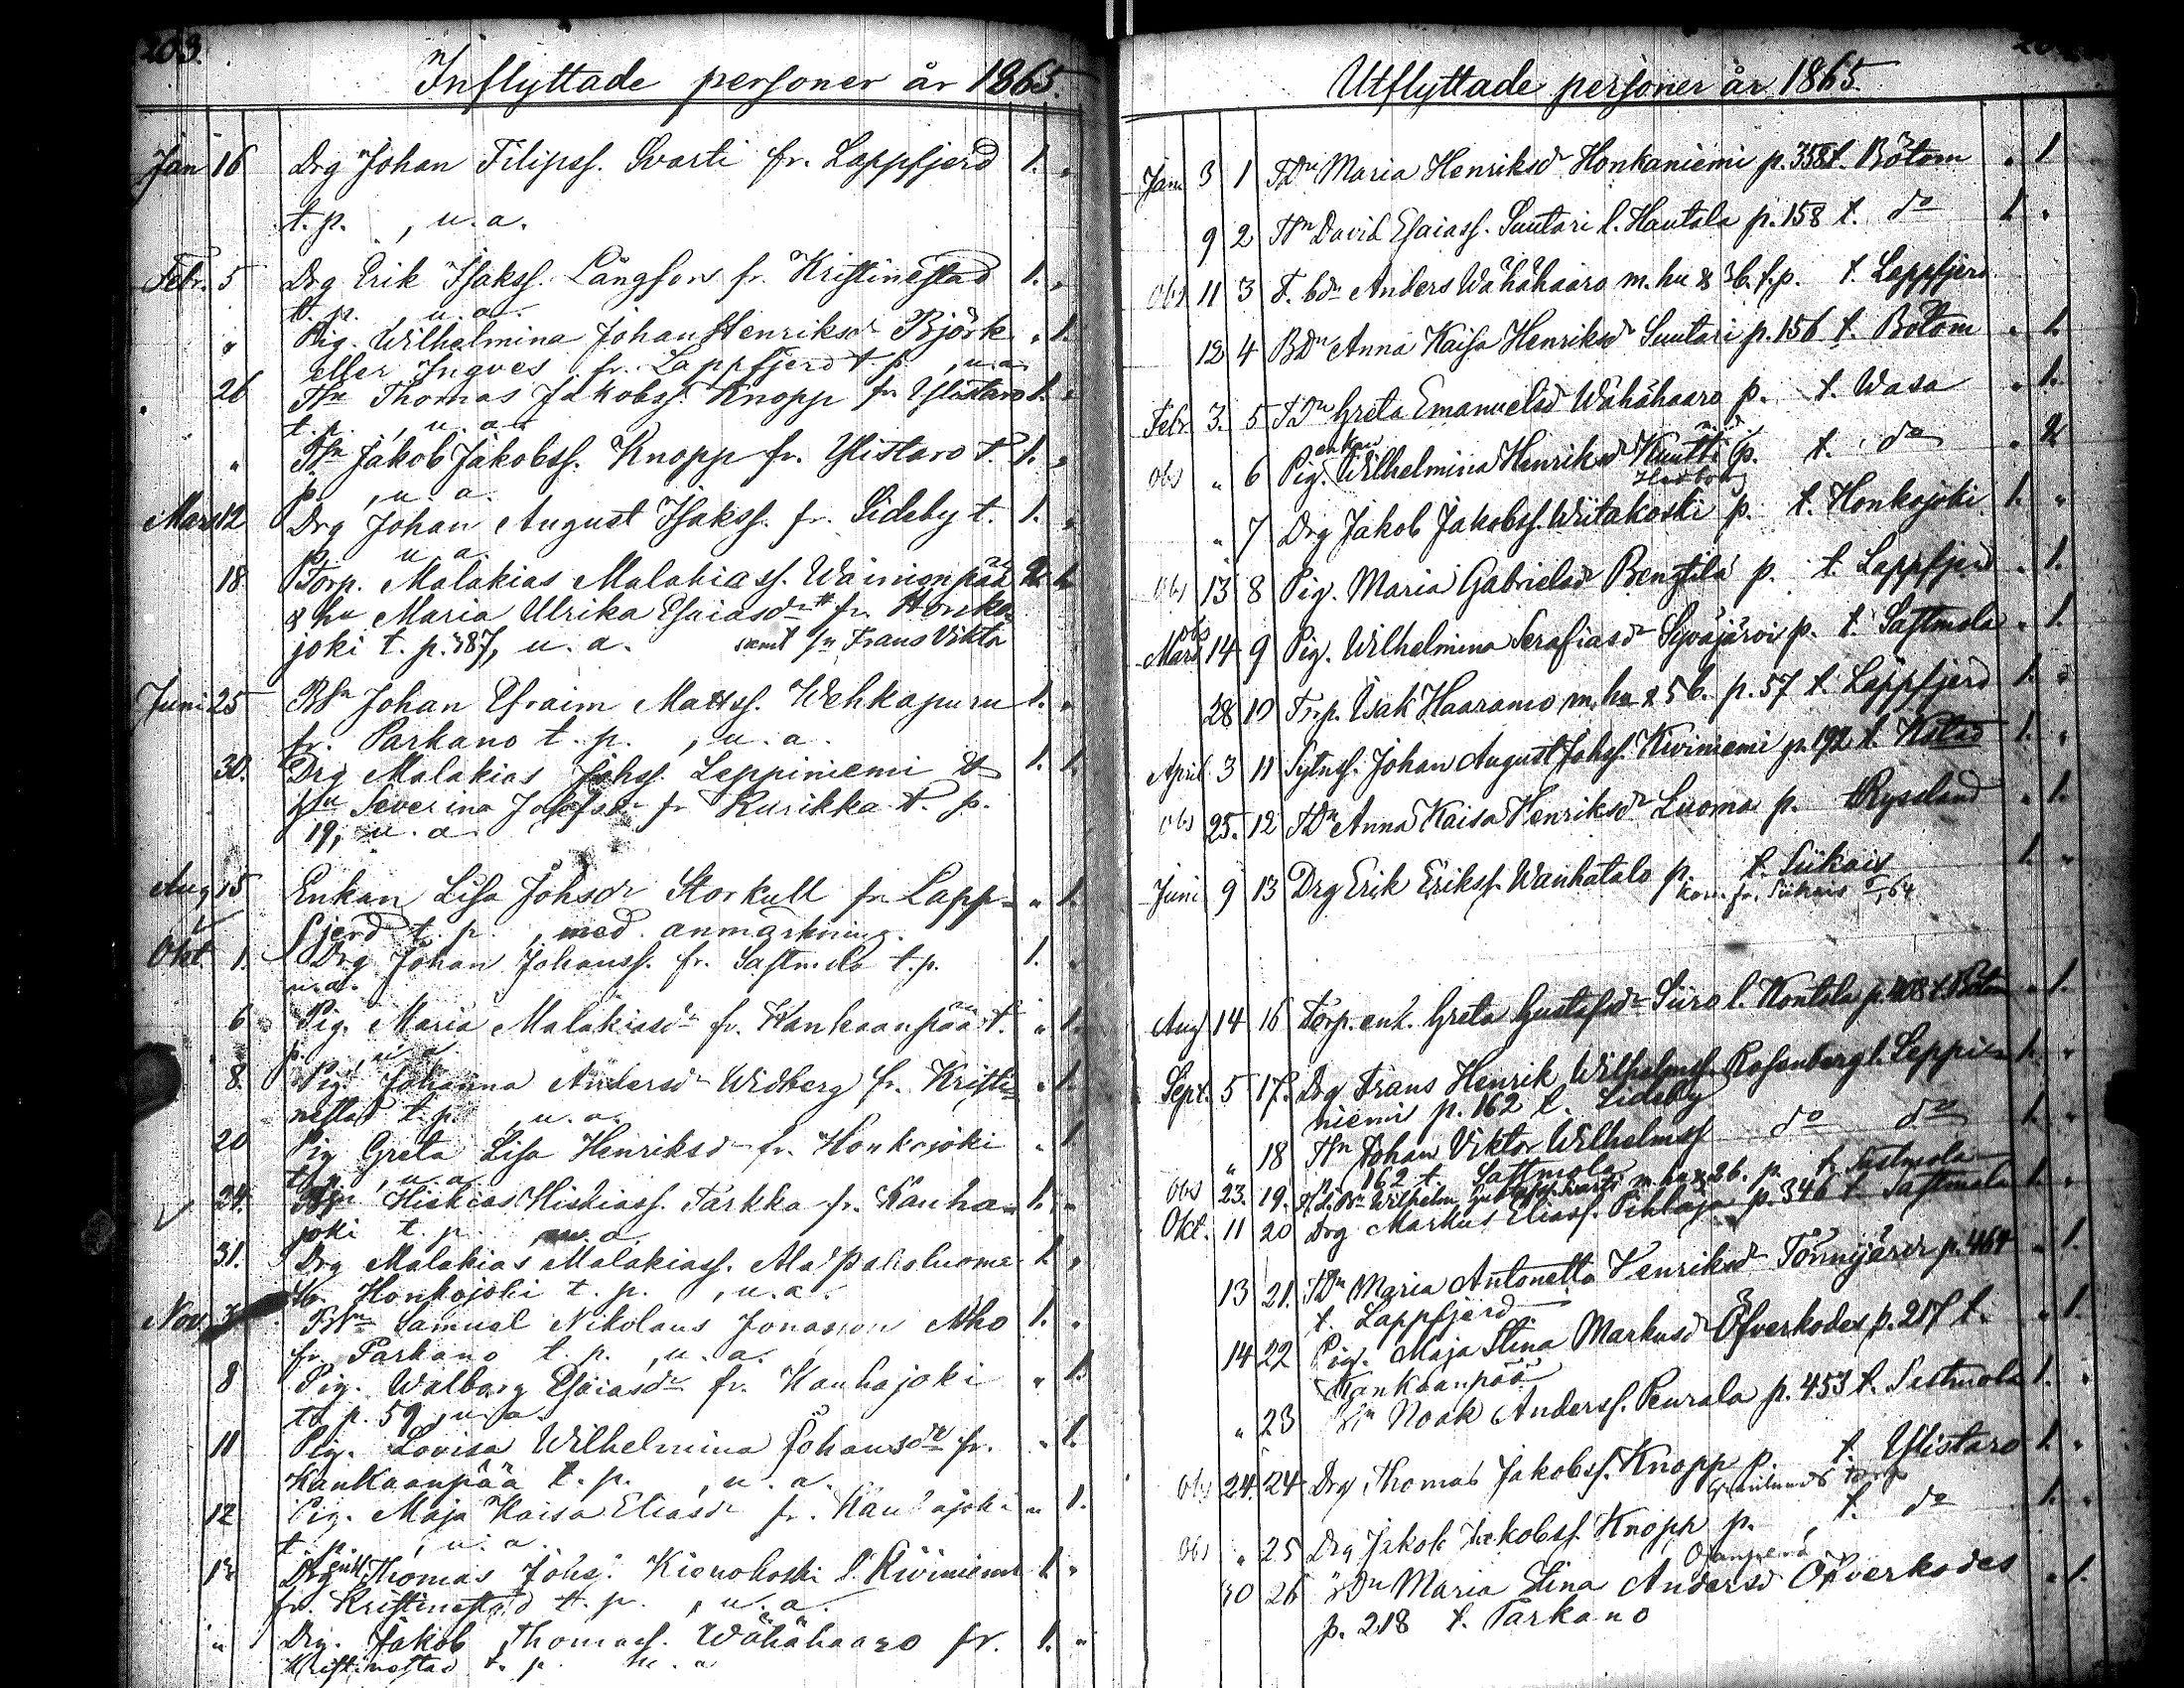 203.
Inflyttade personer år 1865.
Jan 16 Drg Johan Filipss. Svarti fr. Lappfjerd 1. "
t. p. , u. a.
Febr. 5 Drg Erik Isakss. Långfors fr. Kristinestad 1. "
t. p. , u. a.
" Pig. Wilhelmina Johan Henriksdr Björk " 1.
eller Ingves fr. Lappfjerd t. p. , u. a.
26 Thomas Jakobss. Knopp fr. Ylistaro 1. "
t. p. , u. a.
" Jakob Jakobss. Knopp fr. Ylistaro t. 1. "
p. , u. a.
Mars 12 Drg Johan August Isakss. fr. Sideby t. 1. "
p. u. a.
18 Torp. Malakias Malakiass. Wainionpää 2. 1.
& hu Maria Ulrika Esaiasdr fr. Honko-
joki t. p. 387, u. a. samt sn Frans Viktor
Juni 25 Johan Efraim Matss. Wehkapuru 1. "
fr. Parkano t. p. , u. a.
30. Drg Malakias Johss. Leppiniemi & 1. 1.
hu Severina Josefsdr fr Kurikka t. p.
19, u. a.
Aug 15 Enkan Lisa Johsdr Storkull fr. Lapp- " 1.
fjerd t. p. , med anmärkning.
Okt. 1. Drg Johan Johanss. fr. Sastmola t. p. 1. "
u. a.
6 Pig. Maria Malakiasdr fr. Kankaanpää t. " 1.
p. , u. a.
8. Pig. Johanna Andersdr Widberg fr. Kristi- " 1.
nestad t. p. , u. a.
20 Pig Greta Lisa Henriksdr fr. Honkojoki " 1
t. p. , u. a.
24. Hiskias Hiskiass. Tarkka fr. Kauha- 1. "
joki t. p. u. a.
31. Drg Malakias Malakiass. Ala Paholuoma 1. "
fr. Honkojoki t. p. , u. a.
Nov. 3 Samuel Nikolaus Jonasson Aho 1. "
fr. Parkano t. p. , u. a.
8 Pig. Walborg Esaiasdr fr. Kauhajoki " 1.
t. p. 59, u. a.
11 Pig. Lovisa Wilhelmina Johansdr fr. " 1.
Kankaanpää t. p. , u. a.
12 Pig. Maja Kaisa Eliasdr fr. Kauhajoki " 1.
t. p. , u. a.
Drg Thomas Johs. Kienokoski l. Kiviniemi 1. "
fr. Kristinestad t. p. , u. a.
" Drg. Jakob Thomass. Wähähaaro fr. 1. "
Kristinestad t. p. u. a
Utflyttade personer år 1865.
Janu 3 1 TDr Maria Henriksdr Honkaniemi p. 358 t. Bötom " 1
9 2 David Esaiass. Suutari l. Hautala p. 158 t. do 1. "
Obs 11 3 Anders Wähähaaro m. hu & 3 b. f. p. t. Lappfjerd
12 4 BDr Anna Kaisa Henriksdr Suutari p. 156 t. Bötom " 1.
Febr. 3. 5 TDr Greta Emanuelsdr Wähähaaro p. t. Wasa " 1.
enkan
obs " 6 Pig. Wilhelmina Henriksdr Kuutti p. t. do " 2
" 7 Drg Jakob Jakobss. Wiitakoski p. t. Honkojoki 1. "
Obs 13 8 Pig. Maria Gabrielsdr Bengtilä p. t. Lappfjerd " 1.
obs
Mars 14 9 Pig. Wilhelmina Serafiasdr Sywäjärvi p. t. Sastmola " 1.
28 10 Torp. Isak Haaramo m. hu & 5 b. p. 57 t. Lappfjerd 1. "
April 3 11 Sytnss. Johan August Johss. Kiviniemi p. 192 t. Kstad 1. "
obs 25. 12 TDr Anna Kaisa Henriksdr Luoma p. t Ryssland " 1.
Juni 9 13 Drg Erik Erikss. Wanhatalo p. t. Siikais 1. "
kom. fr. Siikais
Aug 14 16 Torp. enk. Greta Gustafsdr Siiro l. Kontola p. 408 t. Bötom " 1.
Sept. 5 17. Drg Frans Henrik Wilhelmss. Rosenberg l. Leppi- 1. "
niemi p. 162 t. Sideby
" 18 Johan Viktor Wilhelmss do do 1. "
p. 162 t. Sastmola
Obs 23. 19. Wilhelm m. hu & 2 b. p. t. Sastmola
Okt. 11 20 Drg Markus Eliass. Pihlaja p. 346 t. Sastmola 1. "
13 21. TDr Maria Antonetta Henriksdr Tönnijärvi p. 464 " 1.
t. Lappfjerd
14 22 Pig. Maja Stina Markusdr Öfverkodes p. 217 t. " 1.
Kankaanpää
" 23 Noak Anderss. Peurala p. 453 t. Sastmola 1. "
Obs 24. 24 Drg Thomas Jakobss. Knopp p. t. Ylistaro 1. "
Obs " 25 Drg Jakob Jakobss. Knopp p. , t. do 1. "
30 26 Maria Stina Andersdr Öfverkodes " 1.
p. 218 t. Parkano